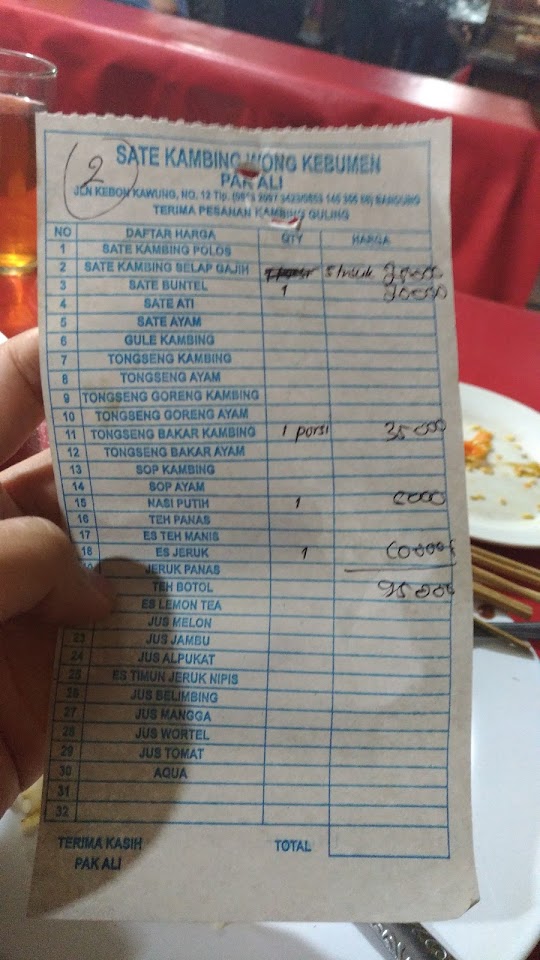 2
SATE KAMBING WONG KEBUMEN
PAK ALI
JLN KEBON KAWUNG, NO. 12 Tlp. BANDUNG
TERIMA PESANAN KAMBING GULING
NO DAFTAR HARGA QTY HARGA
1 SATE KAMBING POLOS
2 SATE KAMBING SELAP GAJIH
3 SATE BUNTEL 1 20000
4 SATE ATI
5 SATE AYAM
6 GULE KAMBING
7 TONGSENG KAMBING
8 TONGSENG AYAM
9 TONGSENG GORENG KAMBING
10 TONGSENG GORENG AYAM
11 TONGSENG BAKAR KAMBING 1 porsi 35000
12 TONGSENG BAKAR AYAM
13 SOP KAMBING
14 SOP AYAM
15 NASI PUTIH 1
16 TEH PANAS
17 ES TEH MANIS
18 ES JERUK 1
JERUK PANAS
TEH BOTOL 95000
ES LEMON TEA
JUS MELON
23 JUS JAMBU
24 JUS ALPUKAT
25 ES TIMUN JERUK NIPIS
26 JUS BELIMBING
27 JUS MANGGA
28 JUS WORTEL
29 JUS TOMAT
30 AQUA
31
32
TERIMA KASIH TOTAL
PAK ALI